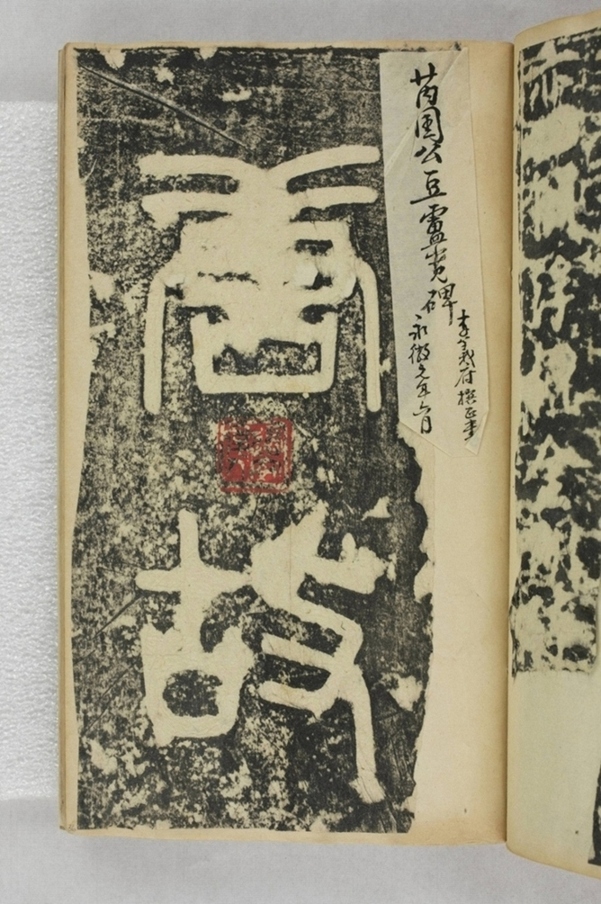 芮國公豆盧寬碑
李義府撰正書
永徽元年六月
唐故